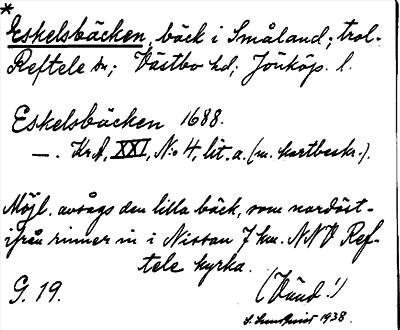 *
Eskelsbäcken, bäck i Småland; trol.
Reftele sn; Västbo hd; Jönköp. l.
Eskelsbäcken 1688.
—. KrA, XXI, No 4, lit. a. (m. kartbeskr.).
Möjl. avsågs den lilla bäck, som nordöst-
ifrån rinner in i Nissan 7 km. NNV Ref-
tele kyrka.
G. 19. (Vänd!)
S. Lundquist 1938.